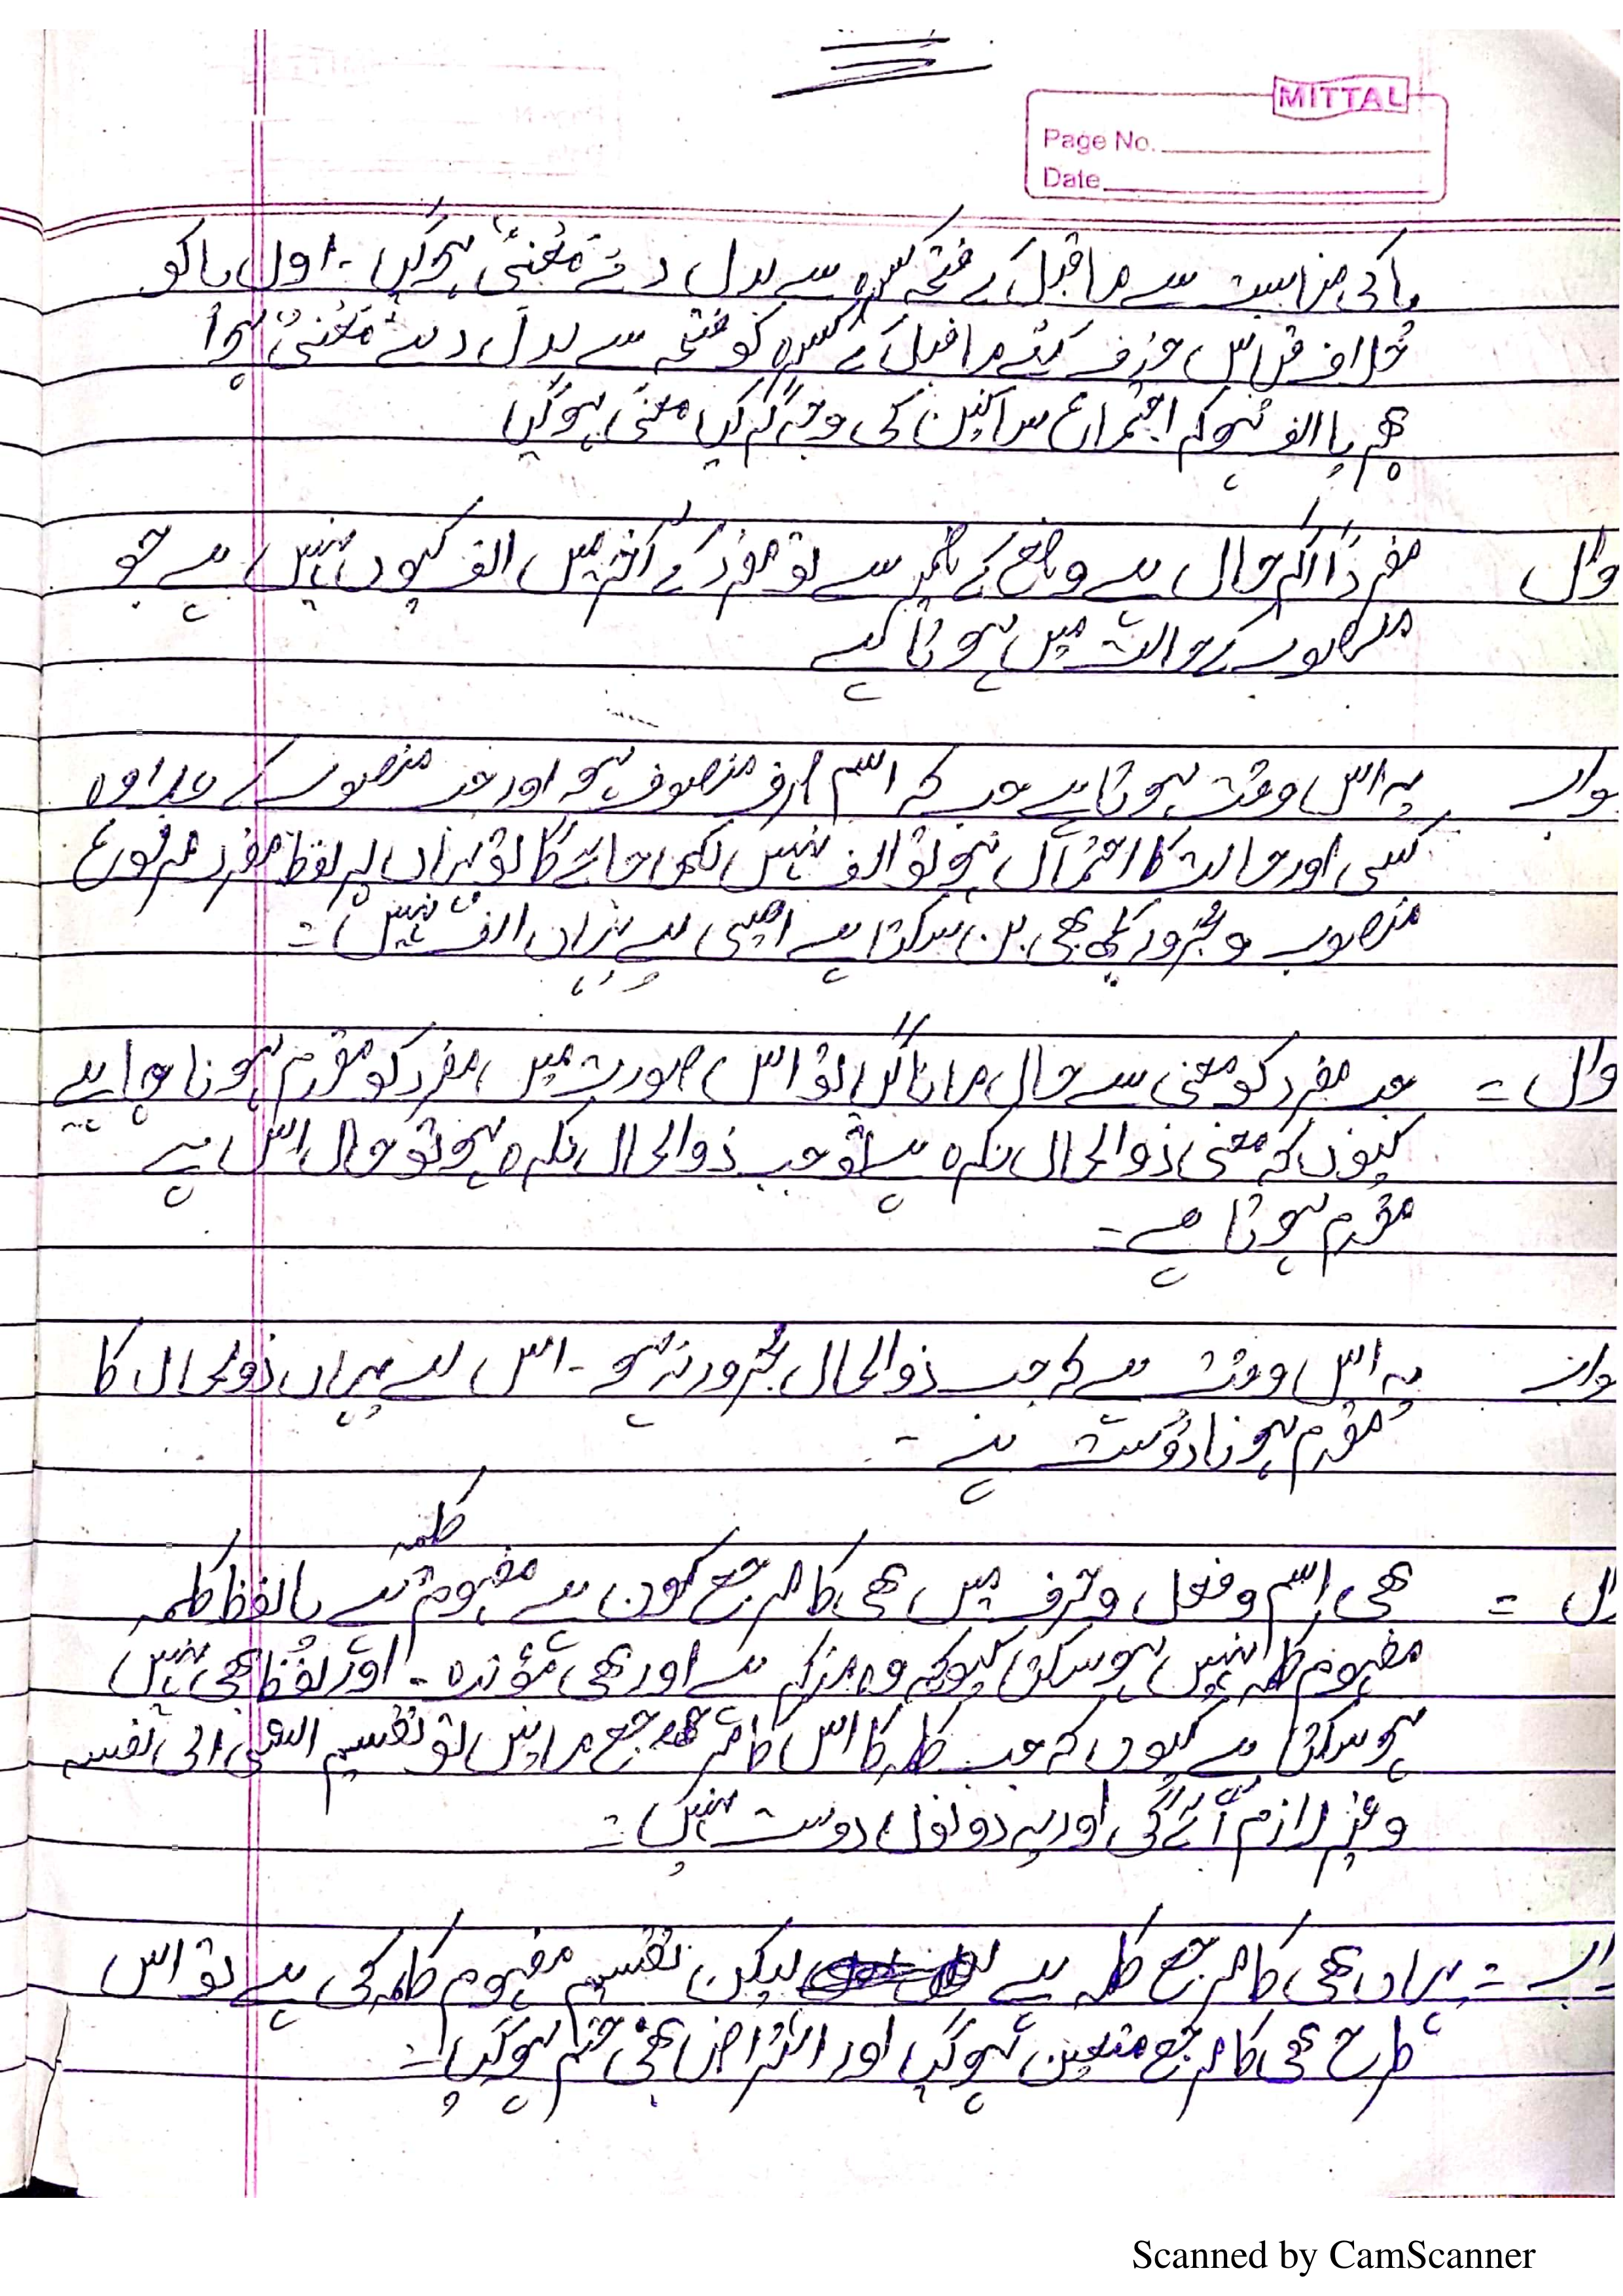 MITTAL
Page No.
Date
یا کی مناسبت سے ماقبل کے فتحہ کسرہ سے بدل دئے مَعْنِیٌ ہوگیا ۔ اول یا کو
خلاف قیاس حزف کئے ماقبل کے کسرہ کو فتحہ سے بدل دئے مَعْنَیٌ ہوا
پھر یا الف ہوکر اجتماع ساکنین کی وجہ گر گیا معنًی ہوگیا
وال مفردًا اگر حال ہے وضع کے ضمیر سے تو مفرد کے آخر میں الف کیوں نہیں ہے جو
منصوب کے حالت میں ہوتا ہے
واب یہ اس وقت ہوتا ہے جب کہ اسم صرف منصوف ہو اور جب منصوب کے علاوہ
کسی اور حالت کا احتمال ہو تو الف نہیں لکھی جائے گا تو یہاں پر لفظ مفرد مرفوع
منصوب و مجرور کچھ بھی بن سکتا ہے اسی لیے یہاں الف نہیں ۔
وال = جب مفرد کو معنی سے حال مانا گیا تو اس صورت میں مفرد کو مقدم ہونا چاہیے
کیوں کہ معنی ذوالحال نکرہ ہے تو جب ذوالحال نکرہ ہو تو حال اس پے
مقدم ہوتا ہے ۔
واب یہ اس وقت ہے کہ جب ذوالحال مجرور نہ ہو ۔ اس لیے یہاں ذوالحال کا
مقدم ہونا درست ہے ۔
ل = ھی اسم و فعل و حرف میں ھی کا مرجع کون ہے مفہوم کلمہ ہے یا لفظ کلمہ
مفہوم کلمہ نہیں ہو سکتا کیوکہ وہ مزکر ہے اور ھی مؤنث ۔ اور لفظ بھی نہیں
ہو سکتا ہے کیوں کہ جب کلمہ کا اس کا مرجع مانیں تو تقسیم الشئ الی نفسہ
وغیرہ لازم آئے گی اور یہ دونوں دوست نہیں ۔
اب = یہاں ھی کا مرجع کلمہ ہے لیکن تقسیم مفہوم کلمہ کی ہے تو اس
طرح ھی کا مرجع متعین ہوگیا اور اعتراض بھی ختم ہوگیا ۔
Scanned by CamScanner